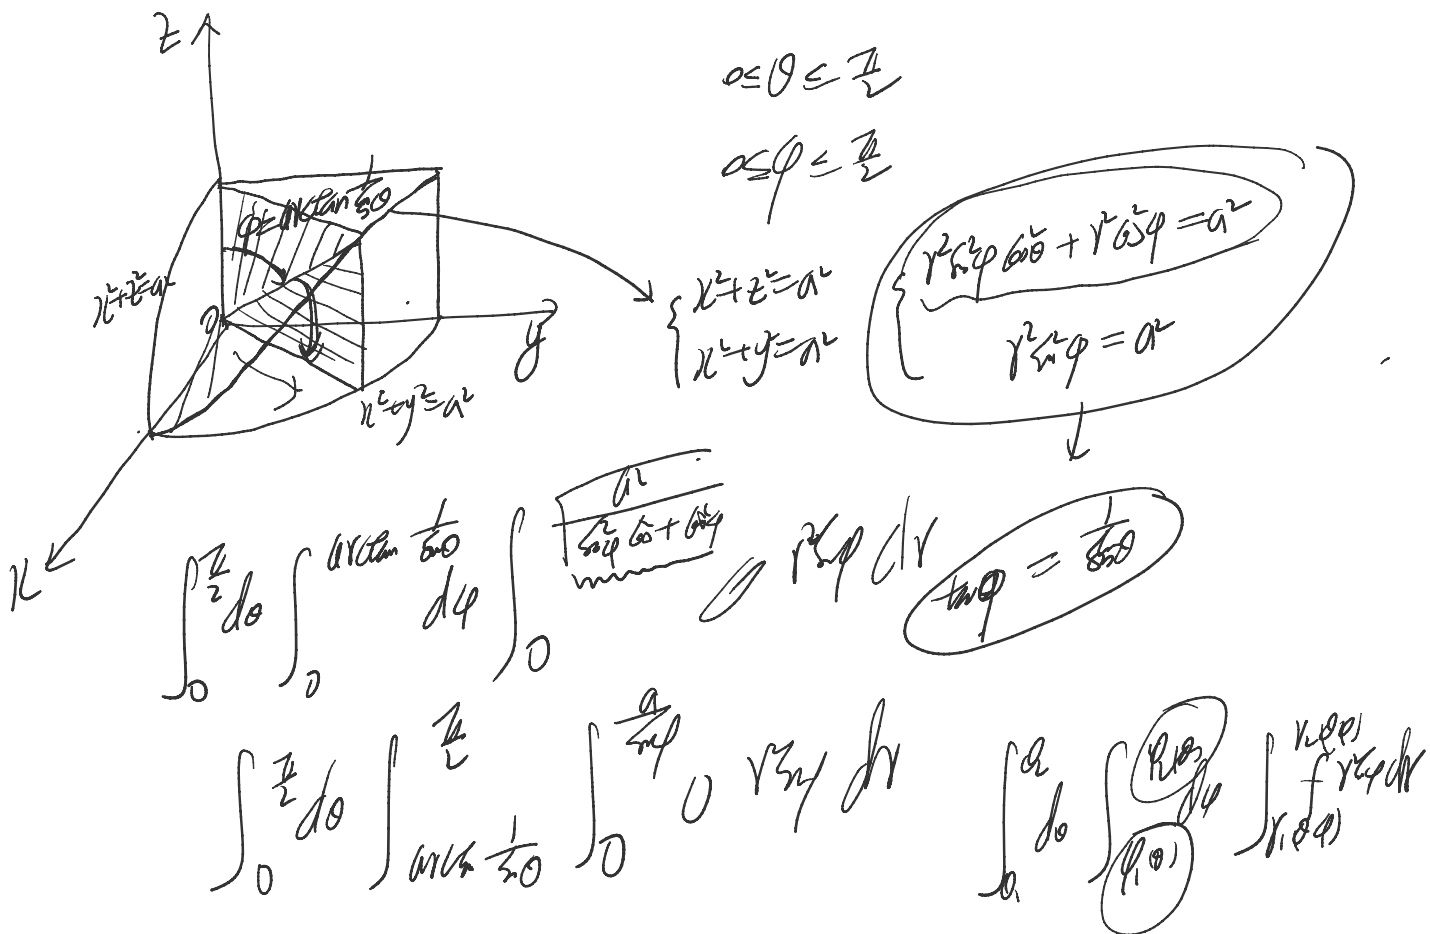 z
0≤θ≤π/2
0≤φ≤π/2
φ=arctan 1/sinθ
x²+z²=a²
0
y
x²+y²=a²
x
{ x²+z²=a²
x²+y²=a²
{ r²sin²φ cos²θ + r²cos²φ = a²
r²sin²φ = a²
tanφ = 1/sinθ
∫₀^{π/2} dθ ∫₀^{arctan 1/sinθ} dφ ∫₀^{√(a²/(sin²φ cos²θ + cos²φ))} r²sinφ dr
∫₀^{π/2} dθ ∫_{arctan 1/sinθ}^{π/2} ∫₀^{a/sinφ} r²sinφ dr
∫_{θ₁}^{θ₂} dθ ∫_{φ₁(θ)}^{φ₂(θ)} dφ ∫_{r₁(θφ)}^{r₂(θφ)} f r²sinφ dr